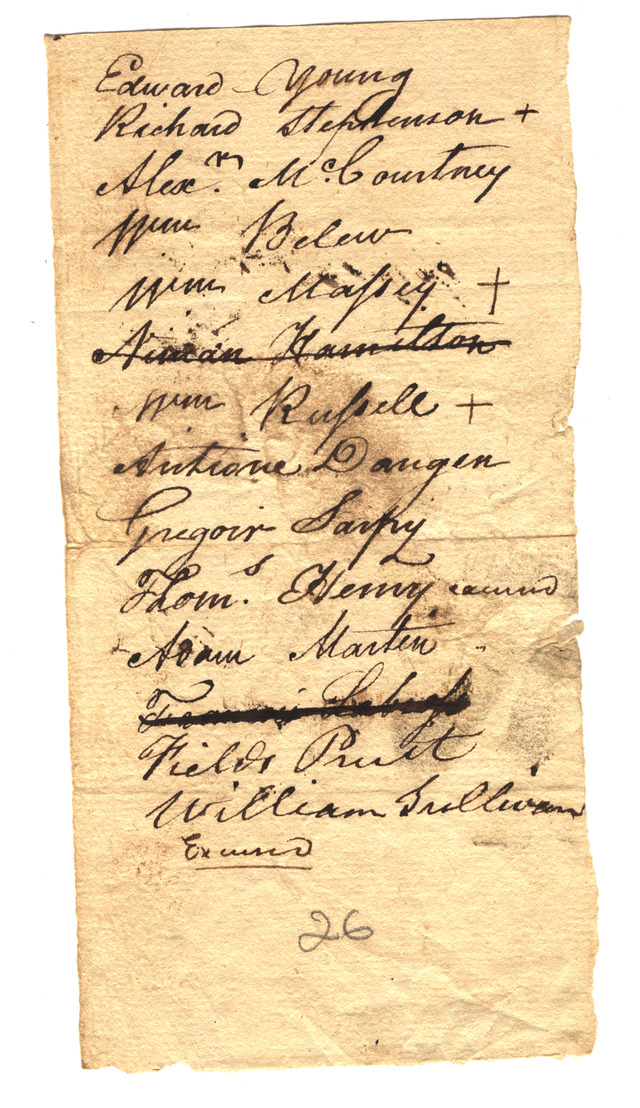 Edward Young
Richard Stephenson +
Alexr. McCourtney
Wm Belew
Wm Massey +
Hamilton
Wm Russell +
Antione Dangen
Gregoir Sarpy
Thoms. Henry excused
Adam Martin
Fields Pruit
William Sullivan
Excused
26